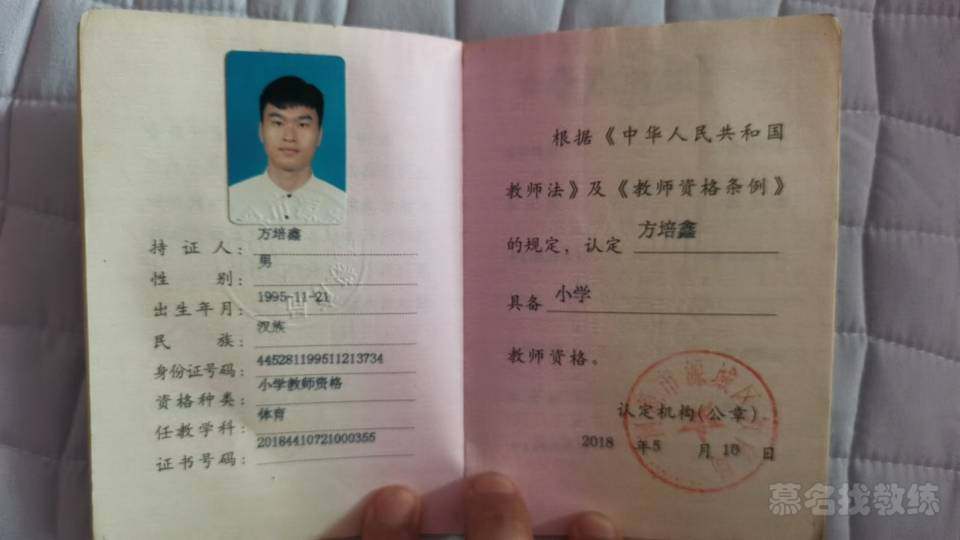 持 证 人：方培鑫
性 别：男
出生年月：1995-11-21
民 族：汉族
身份证号码：445281199511213734
资格种类：小学教师资格
任教学科：体育
证书号码：20184410721000355
根据《中华人民共和国
教师法》及《教师资格条例》
的规定，认定 方培鑫
具备 小学
教师资格。
认定机构(公章)
2018 年5 月 10 日
慕名找教练